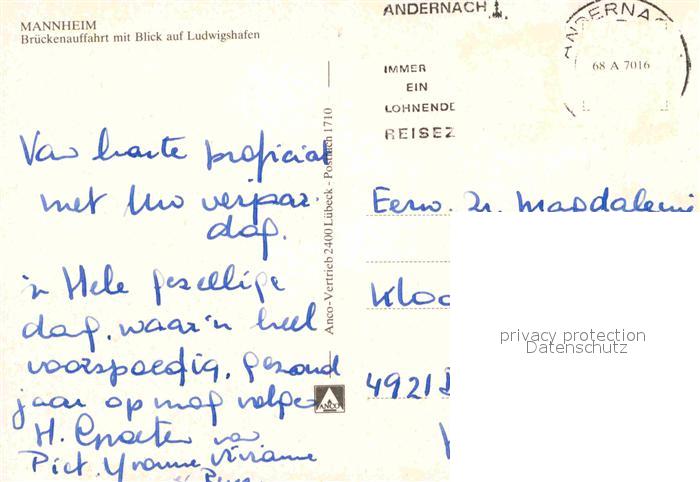 MANNHEIM
Brückenauffahrt mit Blick auf Ludwigshafen
ANDERNACH
ANDERNAC
68 A 7016
IMMER
EIN
LOHNENDE
REISEZ
Anco-Vertrieb 2400 Lübeck - Postfach 1710
ANCO
Van harte proficiat
met Uw verjaar.
dag.
'n Hele gezellige
dag, waar 'n heel
voorspoedig, gezond
jaar op mag volgen
H. Groeten van
Piet. Yvonne Vivianne
Eerw. Zr. Magdaleni
Kloo
4921
privacy protection
Datenschutz